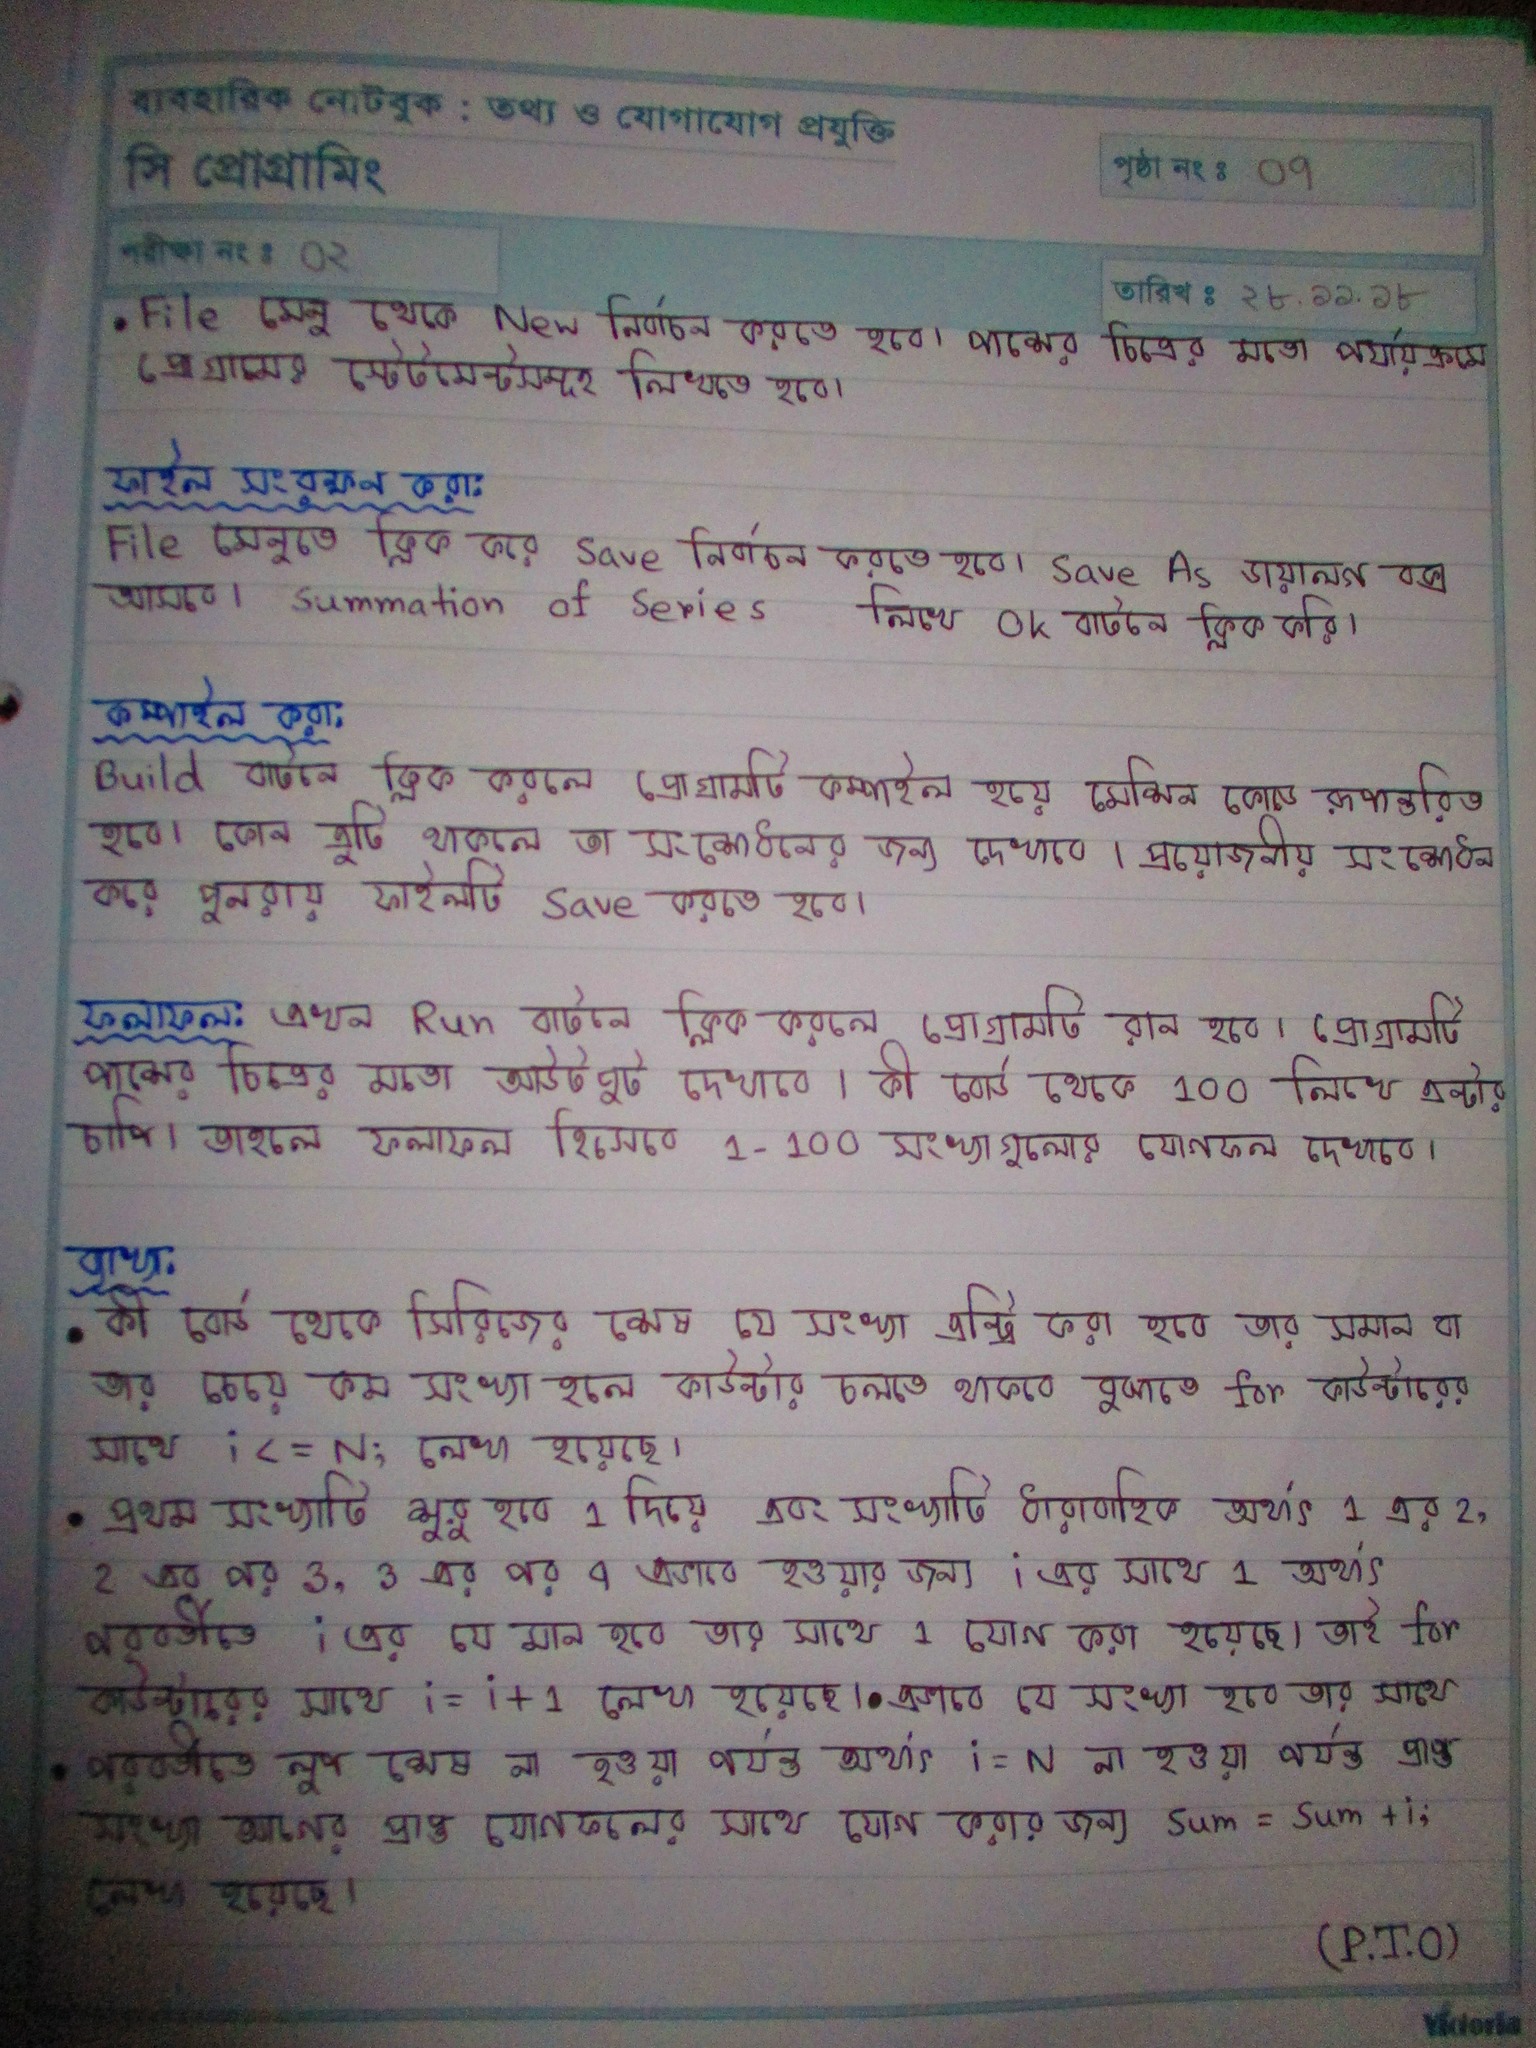 ব্যবহারিক নোটবুক : তথ্য ও যোগাযোগ প্রযুক্তি
সি প্রোগ্রামিং
পৃষ্ঠা নং : 09
পরীক্ষা নং : ০২
তারিখ : ২৮.১১.১৮
• File মেনু থেকে New নির্বাচন করতে হবে। পাশের চিত্রের মতো পর্যায়ক্রমে
প্রোগ্রামের স্টেটমেন্টসমূহ লিখতে হবে।
ফাইল সংরক্ষন করা:
File মেনুতে ক্লিক করে Save নির্বাচন করতে হবে। Save As ডায়ালগ বক্স
আসবে। Summation of Series লিখে Ok বাটনে ক্লিক করি।
কম্পাইল করা:
Build বাটনে ক্লিক করলে প্রোগ্রামটি কম্পাইল হয়ে মেশিন কোডে রূপান্তরিত
হবে। কোন ত্রুটি থাকলে তা সংশোধনের জন্য দেখাবে। প্রয়োজনীয় সংশোধন
করে পুনরায় ফাইলটি Save করতে হবে।
ফলাফল: এখন Run বাটনে ক্লিক করলে প্রোগ্রামটি রান হবে। প্রোগ্রামটি
পাশের চিত্রের মতো আউটপুট দেখাবে। কী বোর্ড থেকে 100 লিখে এন্টার
চাপি। তাহলে ফলাফল হিসেবে 1-100 সংখ্যাগুলোর যোগফল দেখাবে।
ব্যাখ্যা:
• কী বোর্ড থেকে সিরিজের শেষ যে সংখ্যা এন্ট্রি করা হবে তার সমান বা
তার চেয়ে কম সংখ্যা হলে কাউন্টার চলতে থাকবে বুঝাতে for কাউন্টারের
সাথে i <= N; লেখা হয়েছে।
• প্রথম সংখ্যাটি শুরু হবে 1 দিয়ে এবং সংখ্যাটি ধারাবাহিক অর্থাৎ 1 এর 2,
2 এর পর 3, 3 এর পর 4 এভাবে হওয়ার জন্য i এর সাথে 1 অর্থাৎ
পরবর্তীতে i এর যে মান হবে তার সাথে 1 যোগ করা হয়েছে। তাই for
কাউন্টারের সাথে i = i+1 লেখা হয়েছে। • এভাবে যে সংখ্যা হবে তার সাথে
• পরবর্তীতে লুপ শেষ না হওয়া পর্যন্ত অর্থাৎ i = N না হওয়া পর্যন্ত প্রাপ্ত
সংখ্যা আগের প্রাপ্ত যোগফলের সাথে যোগ করার জন্য Sum = Sum + i;
লেখা হয়েছে।
(P.T.O)
Victoria